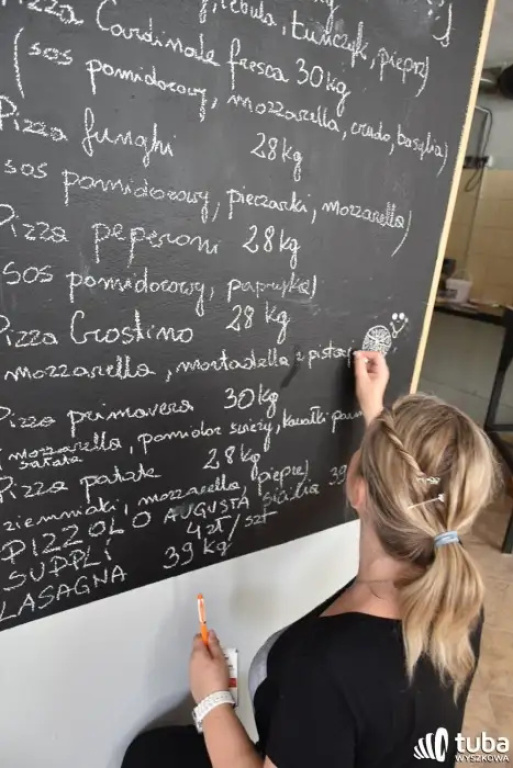 Pizza cebula, tuńczyk, pieprz)
Pizza Cardinale fresca 30kg
(sos pomidorowy, mozzarella, crudo, basylia)
Pizza funghi 28kg
sos pomidorowy, pieczarki, mozzarella)
Pizza peperoni 28kg
sos pomidorowy, papryka)
Pizza Crostino 28kg
mozzarella, mortadella z pistacj
Pizza primavera 30kg
(mozzarella, pomidor świeży, kawałki
sałata
Pizza patate 28kg
ziemniaki, mozzarella, pieprz)
PIZZOLO AUGUSTA Sicilia 39
SUPPLÌ 4zł/szt
LASAGNA 39kg
tuba
WYSZKOWA